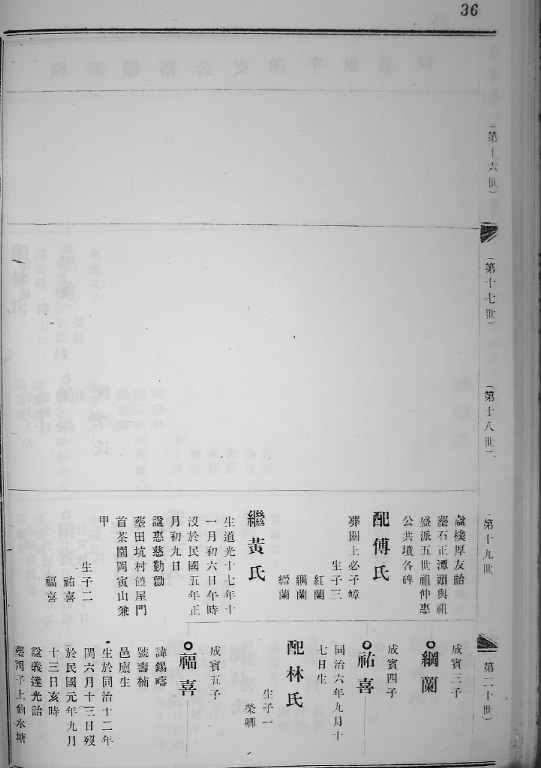 36
(第十六世)
(第十七世)
(第十八世)
第十九世
諡樸厚友詒
墓石正潭頭與祖
盛派五世祖仲惠
公共墳各碑
配傅氏
葬關上必子嶂
生子三
紅蘭
綱蘭
繼黃氏
生道光十七年十
一月初六日午時
沒於民國五年正
月初九日
諡惠慈勤勷
墓田坑村饒屋門
首茶園岡寅山兼
甲
生子二
祐喜
福喜
第二十世)
成賓三子
綱蘭
成賓四子
祐喜
同治六年九月十
七日生
配林氏
生子一
榮卿
成賓五子
福喜
諱錫疇
號壽楠
邑庠生
生於同治十二年
閏六月十三日歿
於民國元年九月
十三日亥時
諡義達光詒
子上仙水塘